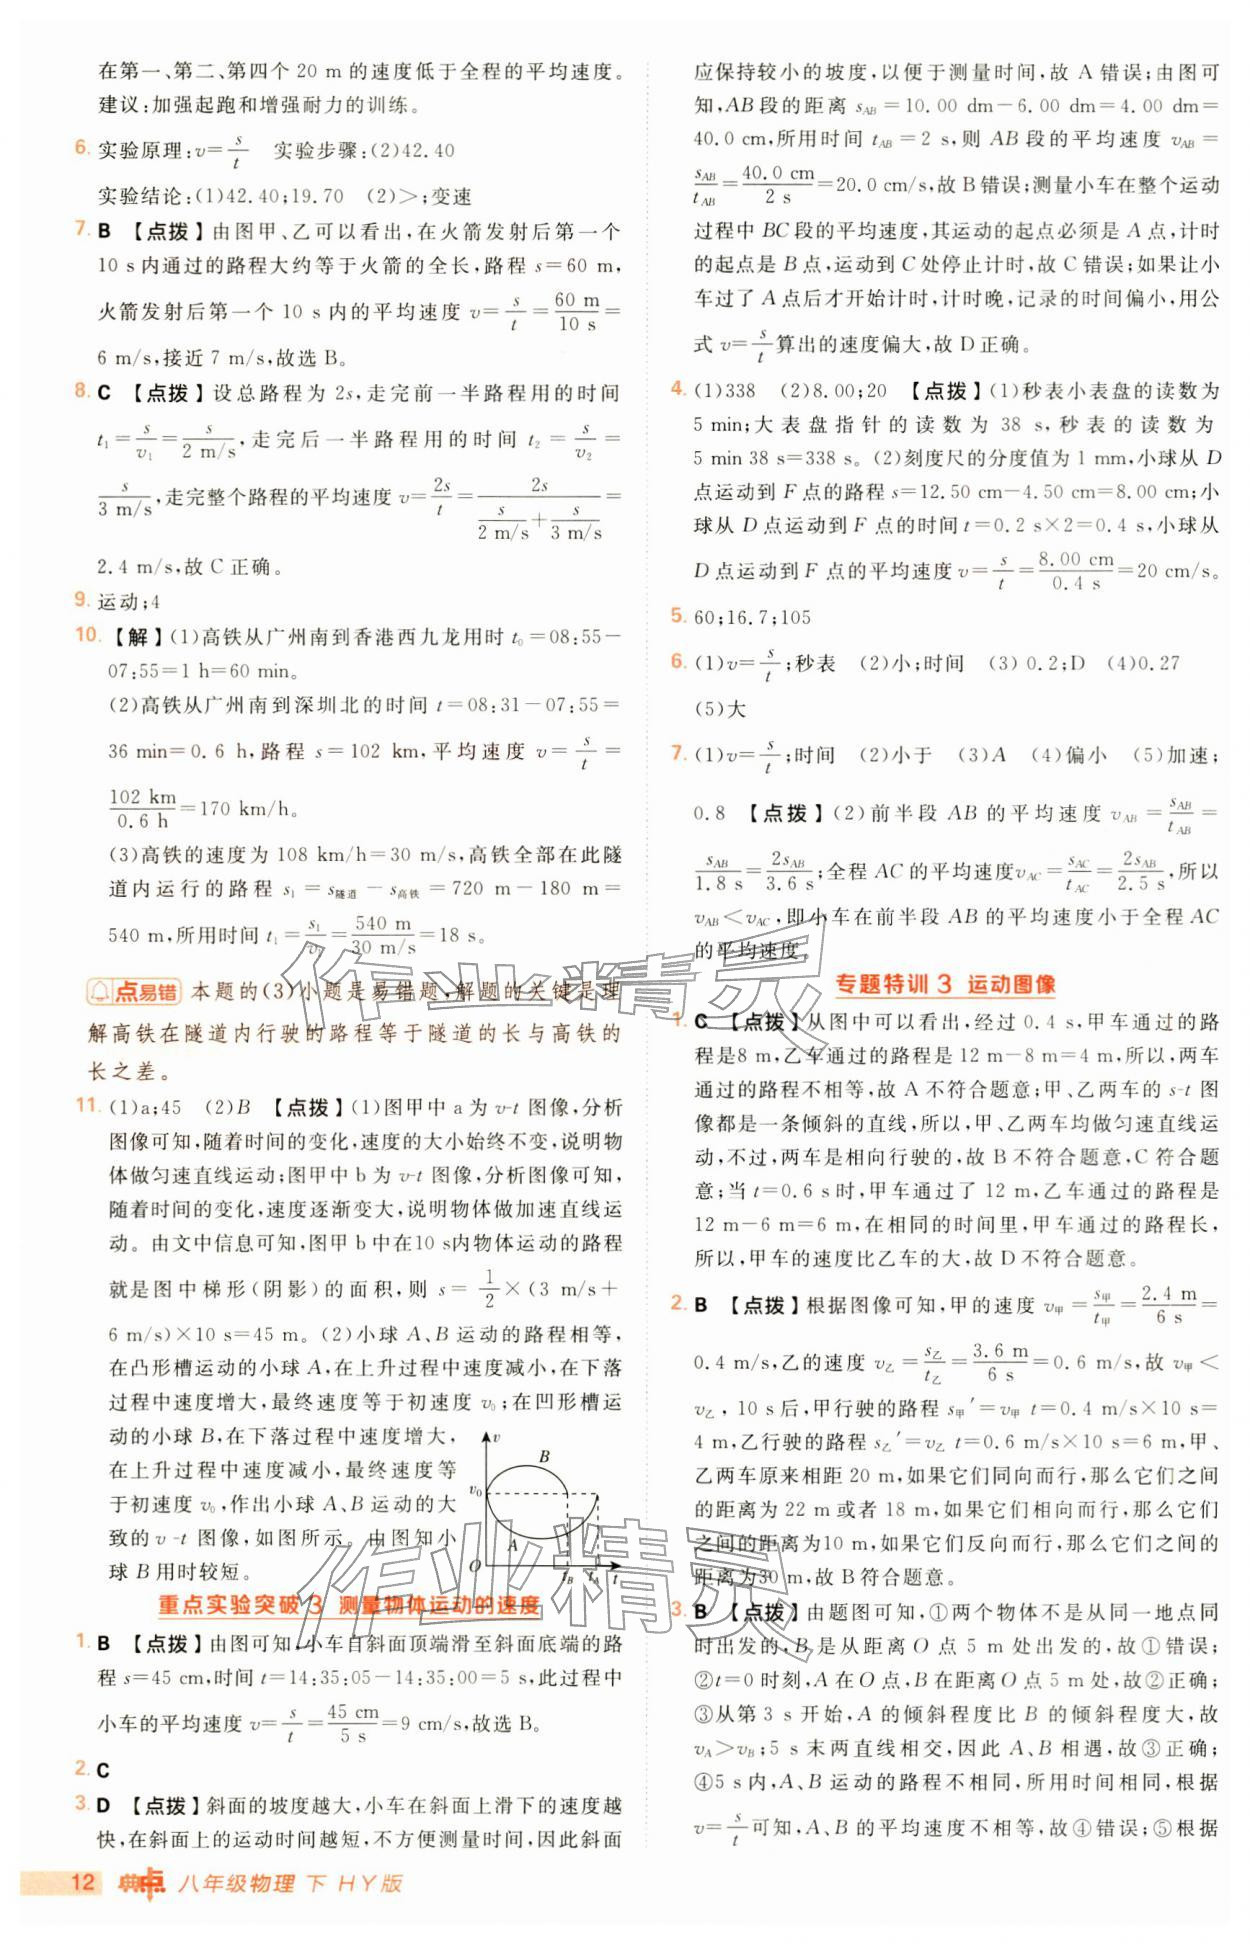 在第一、第二、第四个 20 m 的速度低于全程的平均速度。
建议:加强起跑和增强耐力的训练。
6. 实验原理:v=s/t 实验步骤:(2)42.40
实验结论:(1)42.40;19.70 (2)>;变速
7. B 【点拨】由图甲、乙可以看出,在火箭发射后第一个
10 s内通过的路程大约等于火箭的全长,路程 s=60 m,
火箭发射后第一个 10 s 内的平均速度 v=s/t=60 m/10 s=
6 m/s,接近 7 m/s,故选 B。
8. C 【点拨】设总路程为 2s,走完前一半路程用的时间
t₁=s/v₁=s/(2 m/s),走完后一半路程用的时间 t₂=s/v₂=
s/(3 m/s),走完整个路程的平均速度 v=2s/t=2s/(s/(2 m/s)+s/(3 m/s))=
2.4 m/s,故 C 正确。
9. 运动;4
10. 【解】(1)高铁从广州南到香港西九龙用时 t₀=08:55-
07:55=1 h=60 min。
(2)高铁从广州南到深圳北的时间 t=08:31-07:55=
36 min=0.6 h,路程 s=102 km,平均速度 v=s/t=
102 km/0.6 h=170 km/h。
(3)高铁的速度为 108 km/h=30 m/s,高铁全部在此隧
道内运行的路程 s₁=s隧道-s高铁=720 m-180 m=
540 m,所用时间 t₁=s₁/v₀=540 m/(30 m/s)=18 s。
点易错 本题的(3)小题是易错题,解题的关键是理
解高铁在隧道内行驶的路程等于隧道的长与高铁的
长之差。
11. (1)a;45 (2)B 【点拨】(1)图甲中 a 为 v-t 图像,分析
图像可知,随着时间的变化,速度的大小始终不变,说明物
体做匀速直线运动;图甲中 b 为 v-t 图像,分析图像可知,
随着时间的变化,速度逐渐变大,说明物体做加速直线运
动。由文中信息可知,图甲 b 中在10 s内物体运动的路程
就是图中梯形(阴影)的面积,则 s=1/2×(3 m/s+
6 m/s)×10 s=45 m。(2)小球 A、B 运动的路程相等,
在凸形槽运动的小球 A,在上升过程中速度减小,在下落
过程中速度增大,最终速度等于初速度 v₀;在凹形槽运
动的小球 B,在下落过程中速度增大,
在上升过程中速度减小,最终速度等
于初速度 v₀,作出小球 A、B 运动的大
致的 v-t 图像,如图所示。由图知小
球 B 用时较短。
v
B
v₀
A
O
t_B
t_A
t
重点实验突破 3 测量物体运动的速度
1. B 【点拨】由图可知,小车自斜面顶端滑至斜面底端的路
程 s=45 cm,时间 t=14:35:05-14:35:00=5 s,此过程中
小车的平均速度 v=s/t=45 cm/5 s=9 cm/s,故选 B。
2. C
3. D 【点拨】斜面的坡度越大,小车在斜面上滑下的速度越
快,在斜面上的运动时间越短,不方便测量时间,因此斜面
应保持较小的坡度,以便于测量时间,故 A 错误;由图可
知,AB 段的距离 s_AB=10.00 dm-6.00 dm=4.00 dm=
40.0 cm,所用时间 t_AB=2 s,则 AB 段的平均速度 v_AB=
s_AB/t_AB=40.0 cm/2 s=20.0 cm/s,故 B 错误;测量小车在整个运动
过程中 BC 段的平均速度,其运动的起点必须是 A 点,计时
的起点是 B 点,运动到 C 处停止计时,故 C 错误;如果让小
车过了 A 点后才开始计时,计时晚,记录的时间偏小,用公
式 v=s/t算出的速度偏大,故 D 正确。
4. (1)338 (2)8.00;20 【点拨】(1)秒表小表盘的读数为
5 min;大表盘指针的读数为 38 s,秒表的读数为
5 min 38 s=338 s。(2)刻度尺的分度值为 1 mm,小球从 D
点运动到 F 点的路程 s=12.50 cm-4.50 cm=8.00 cm;小
球从 D 点运动到 F 点的时间 t=0.2 s×2=0.4 s,小球从
D 点运动到 F 点的平均速度 v=s/t=8.00 cm/0.4 s=20 cm/s。
5. 60;16.7;105
6. (1)v=s/t;秒表 (2)小;时间 (3)0.2;D (4)0.27
(5)大
7. (1)v=s/t;时间 (2)小于 (3)A (4)偏小 (5)加速;
0.8 【点拨】(2)前半段 AB 的平均速度 v_AB=s_AB/t_AB=
s_AB/1.8 s=2s_AB/3.6 s;全程 AC 的平均速度v_AC=s_AC/t_AC=2s_AB/2.5 s,所以
v_AB<v_AC,即小车在前半段 AB 的平均速度小于全程 AC
的平均速度。
专题特训 3 运动图像
1. C 【点拨】从图中可以看出,经过 0.4 s,甲车通过的路
程是8 m,乙车通过的路程是 12 m-8 m=4 m,所以,两车
通过的路程不相等,故 A 不符合题意;甲、乙两车的 s-t 图
像都是一条倾斜的直线,所以,甲、乙两车均做匀速直线运
动,不过,两车是相向行驶的,故 B 不符合题意,C 符合题
意;当 t=0.6 s时,甲车通过了 12 m,乙车通过的路程是
12 m-6 m=6 m,在相同的时间里,甲车通过的路程长,
所以,甲车的速度比乙车的大,故 D 不符合题意。
2. B 【点拨】根据图像可知,甲的速度 v甲=s甲/t甲=2.4 m/6 s=
0.4 m/s,乙的速度 v乙=s乙/t乙=3.6 m/6 s=0.6 m/s,故 v甲<
v乙,10 s后,甲行驶的路程 s甲′=v甲 t=0.4 m/s×10 s=
4 m,乙行驶的路程 s乙′=v乙 t=0.6 m/s×10 s=6 m,甲、
乙两车原来相距 20 m,如果它们同向而行,那么它们之间
的距离为 22 m 或者 18 m,如果它们相向而行,那么它们
之间的距离为10 m,如果它们反向而行,那么它们之间的
距离为30 m,故 B 符合题意。
3. B 【点拨】由题图可知,①两个物体不是从同一地点同
时出发的,B 是从距离 O 点 5 m 处出发的,故①错误;
②t=0 时刻,A 在 O 点,B 在距离 O 点 5 m 处,故②正确;
③从第 3 s 开始,A 的倾斜程度比 B 的倾斜程度大,故
v_A>v_B;5 s 末两直线相交,因此 A、B 相遇,故③正确;
④5 s内,A、B 运动的路程不相同,所用时间相同,根据
v=s/t可知,A、B 的平均速度不相等,故④错误;⑤根据
作业精灵
作业精灵
12 典中点 八年级物理 下 HY版